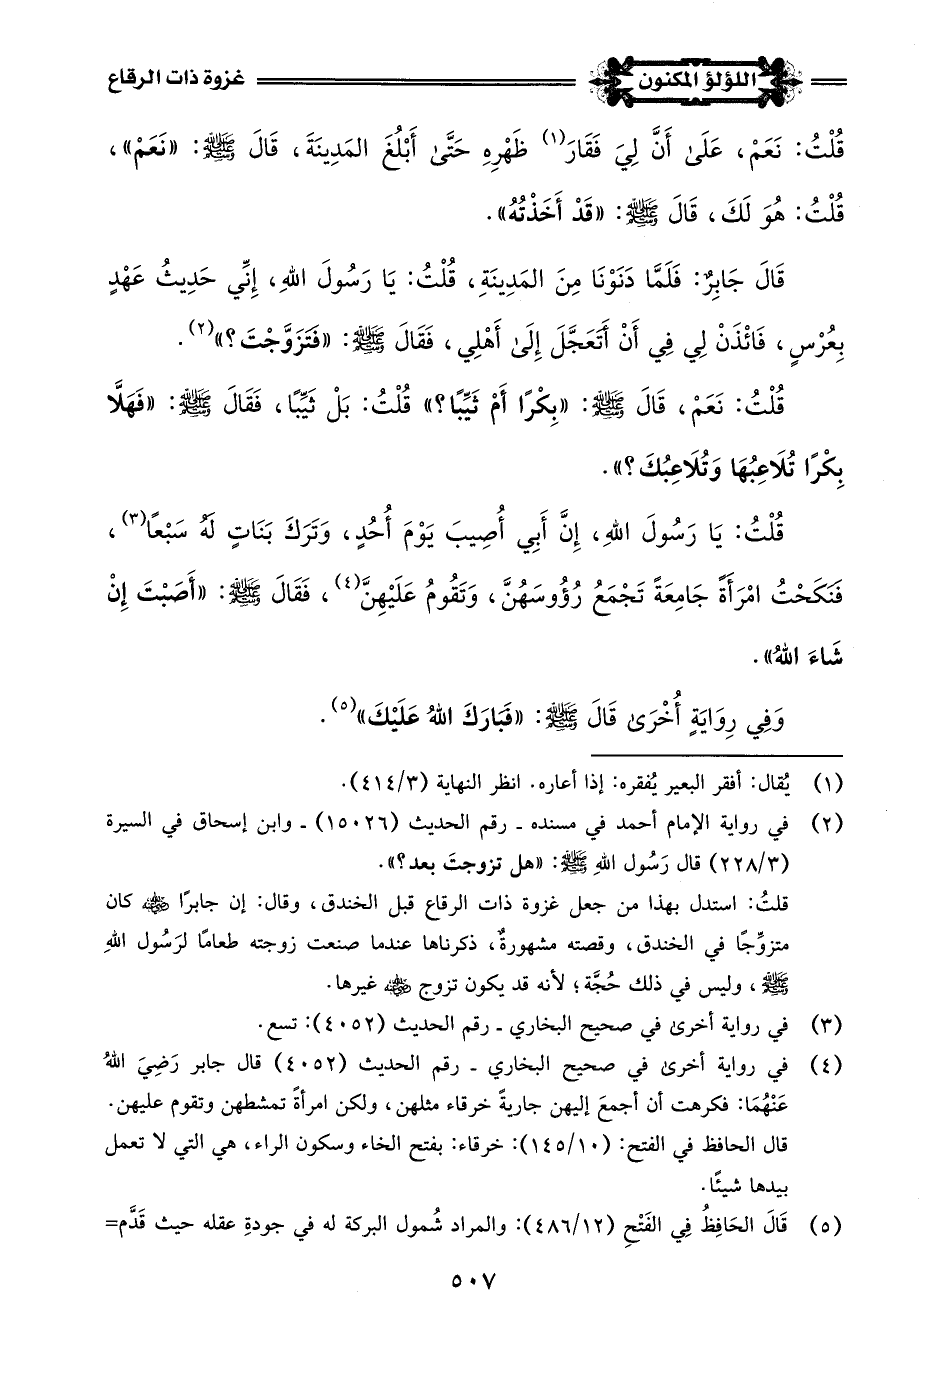 اللؤلؤ المكنون غزوة ذات الرقاع
قُلْتُ: نَعَمْ، عَلَىٰ أَنَّ لِيَ فَقَارَ(١) ظَهْرِهِ حَتَّىٰ أَبْلُغَ المَدِينَةَ، قَالَ ﷺ: «نَعَمْ»،
قُلْتُ: هُوَ لَكَ، قَالَ ﷺ: «قَدْ أَخَذْتُهُ».
قَالَ جَابِرٌ: فَلَمَّا دَنَوْنَا مِنَ المَدِينَةِ، قُلْتُ: يَا رَسُولَ اللهِ، إِنِّي حَدِيثُ عَهْدٍ
بِعُرْسٍ، فَائْذَنْ لِي فِي أَنْ أَتَعَجَّلَ إِلَىٰ أَهْلِي، فَقَالَ ﷺ: «فَتَزَوَّجْتَ؟»(٢).
قُلْتُ: نَعَمْ، قَالَ ﷺ: «بِكْرًا أَمْ ثَيِّبًا؟» قُلْتُ: بَلْ ثَيِّبًا، فَقَالَ ﷺ: «فَهَلَّا
بِكْرًا تُلَاعِبُهَا وَتُلَاعِبُكَ؟».
قُلْتُ: يَا رَسُولَ اللهِ، إِنَّ أَبِي أُصِيبَ يَوْمَ أُحُدٍ، وَتَرَكَ بَنَاتٍ لَهُ سَبْعًا(٣)،
فَنَكَحْتُ امْرَأَةً جَامِعَةً تَجْمَعُ رُؤُوسَهُنَّ، وَتَقُومُ عَلَيْهِنَّ(٤)، فَقَالَ ﷺ: «أَصَبْتَ إِنْ
شَاءَ اللهُ».
وَفِي رِوَايَةٍ أُخْرَىٰ قَالَ ﷺ: «فَبَارَكَ اللهُ عَلَيْكَ»(٥).
(١) يُقال: أفقر البعير يُفقره: إذا أعاره. انظر النهاية (٤١٤/٣).
(٢) في رواية الإمام أحمد في مسنده - رقم الحديث (١٥٠٢٦) - وابن إسحاق في السيرة
(٢٢٨/٣) قال رَسُول اللهِ ﷺ: «هل تزوجتَ بعد؟».
قلتُ: استدل بهذا من جعل غزوة ذات الرقاع قبل الخندق، وقال: إن جابرًا رضي الله عنه كان
متزوِّجًا في الخندق، وقصته مشهورةٌ، ذكرناها عندما صنعت زوجته طعامًا لرَسُول اللهِ
ﷺ، وليس في ذلك حُجَّة؛ لأنه قد يكون تزوج رضي الله عنه غيرها.
(٣) في رواية أخرىٰ في صحيح البخاري - رقم الحديث (٤٠٥٢): تسع.
(٤) في رواية أخرىٰ في صحيح البخاري - رقم الحديث (٤٠٥٢) قال جابر رَضِيَ اللهُ
عَنْهُمَا: فكرهت أن أجمعَ إليهن جاريةً خرقاء مثلهن، ولكن امرأةً تمشطهن وتقوم عليهن.
قال الحافظ في الفتح: (١٤٥/١٠): خرقاء: بفتح الخاء وسكون الراء، هي التي لا تعمل
بيدها شيئًا.
(٥) قَالَ الحَافِظُ فِي الفَتْحِ (٤٨٦/١٢): والمراد شُمول البركة له في جودةِ عقله حيث قَدَّم=
٥٠٧